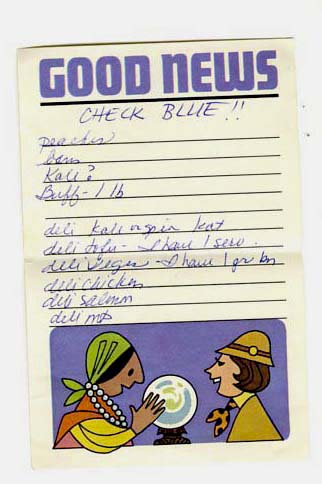 GOOD NEWS
CHECK BLUE!!
peaches
Kale?
Buff - 1 lb
deli kale
deli tofu - I have 1 serv.
deli veges - I have 1 gr bn
deli chicken
deli salmon
deli